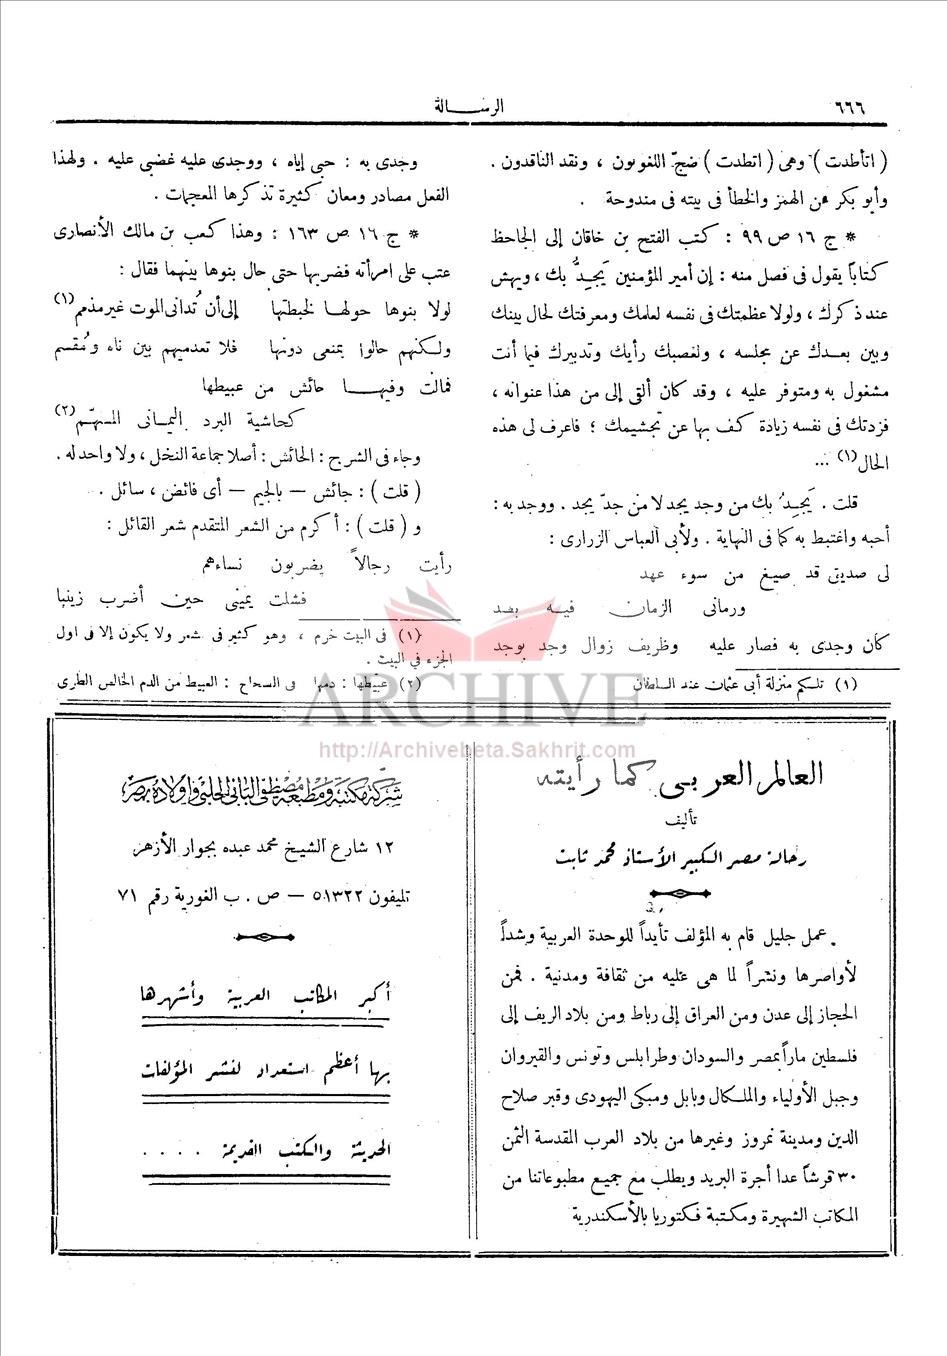 ٦٦٦
الرسالة
( اتأطدت ) وهى ( اتطدت ) ضجّ اللغويون ، ونقد الناقدون .
وأبو بكر من الهمز والخطأ فى بيته فى مندوحة .
* ج ١٦ ص ٩٩ : كتب الفتح بن خاقان إلى الجاحظ
كتاباً يقول فى فصل منه : إن أمير المؤمنين يَجِدُّ بك ، ويهش
عند ذكرك ، ولولا عظمتك فى نفسه لعلمك ومعرفتك لحال بينك
وبين بعدك عن مجلسه ، ولغصبك رأيك وتدبيرك فيما أنت
مشغول به ومتوفر عليه ، وقد كان ألقى إلى من هذا عنوانه ،
فزدتك فى نفسه زيادة كف بها عن تجشيمك ؛ فاعرف لى هذه
الحال (١) ...
قلت . يَجِدُ بك من وجد يجد لا من جدّ يجد . ووجد به :
أحبه واغتبط به كما فى النهاية . ولأبى العباس الزرارى :
لى صديق قد صيغ من سوء عهد
ورمانى الزمان فيه بصد
كان وجدى به فصار عليه وظريف زوال وجد بوجد
(١) تلكم منزلة أبى عثمان عند السلطان
وجدى به : حبى إياه ، ووجدى عليه غضبى عليه . ولهذا
الفعل مصادر ومعان كثيرة تذكرها المعجمات .
* ج ١٦ ص ١٦٣ : وهذا كعب بن مالك الأنصارى
عتب على امرأته فضربها حتى حال بنوها بينهما فقال :
لولا بنوها حولها لخبطتها إلى أن تُدانى الموت غير مذمم (١)
ولكنهم حالوا بمنعى دونها فلا تعدميهم بين ناء ومُقسم
فمالت وفيها حائش من عبيطها
كحاشية البرد اليمانى المسهّم (٢)
وجاء فى الشرح : الحائش : أصلا جماعة النخل ، ولا واحد له .
( قلت ) : جائش — بالجيم — أى فائض ، سائل .
و ( قلت ) : أكرم من الشعر المتقدم شعر القائل :
رأيت رجالاً يضربون نساءهم
فشلت يمينى حين أضرب زينبا
(١) فى البيت خرم ، وهو كثير فى شعر ولا يكون إلا فى اول
الجزء فى البيت .
(٢) عبيطها : دمها فى الصحاح : العبيط من الدم الخالص الطرى
ARCHIVE
http://Archivebeta.Sakhrit.com
العالم العربى كما رأيته
تأليف
رحالة مصر الكبير الأستاذ محمد ثابت
عمل جليل قام به المؤلف تأيداً للوحدة العربية وشداً
لأواصرها ونشراً لما هى عليه من ثقافة ومدنية . فمن
الحجاز إلى عدن ومن العراق إلى رباط ومن بلاد الريف إلى
فلسطين ماراً بمصر والسودان وطرابلس وتونس والقيروان
وجبل الأولياء والملكال وبابل ومبكى اليهودى وقبر صلاح
الدين ومدينة نمروز وغيرها من بلاد العرب المقدسة الثمن
٣٠ قرشاً عدا أجرة البريد ويطلب مع جميع مطبوعاتنا من
المكاتب الشهيرة ومكتبة فكتوريا بالأسكندرية
شركة مكتبة ومطبعة مصطفى البابى الحلبى وأولاده بمصر
١٢ شارع الشيخ محمد عبده بجوار الأزهر
تليفون ٥١٣٢٢ — ص . ب الغورية رقم ٧١
أكبر المكاتب العربية وأشهرها
بها أعظم استعداد لنشر المؤلفات
الحديثة والكتب القديمة . . . .